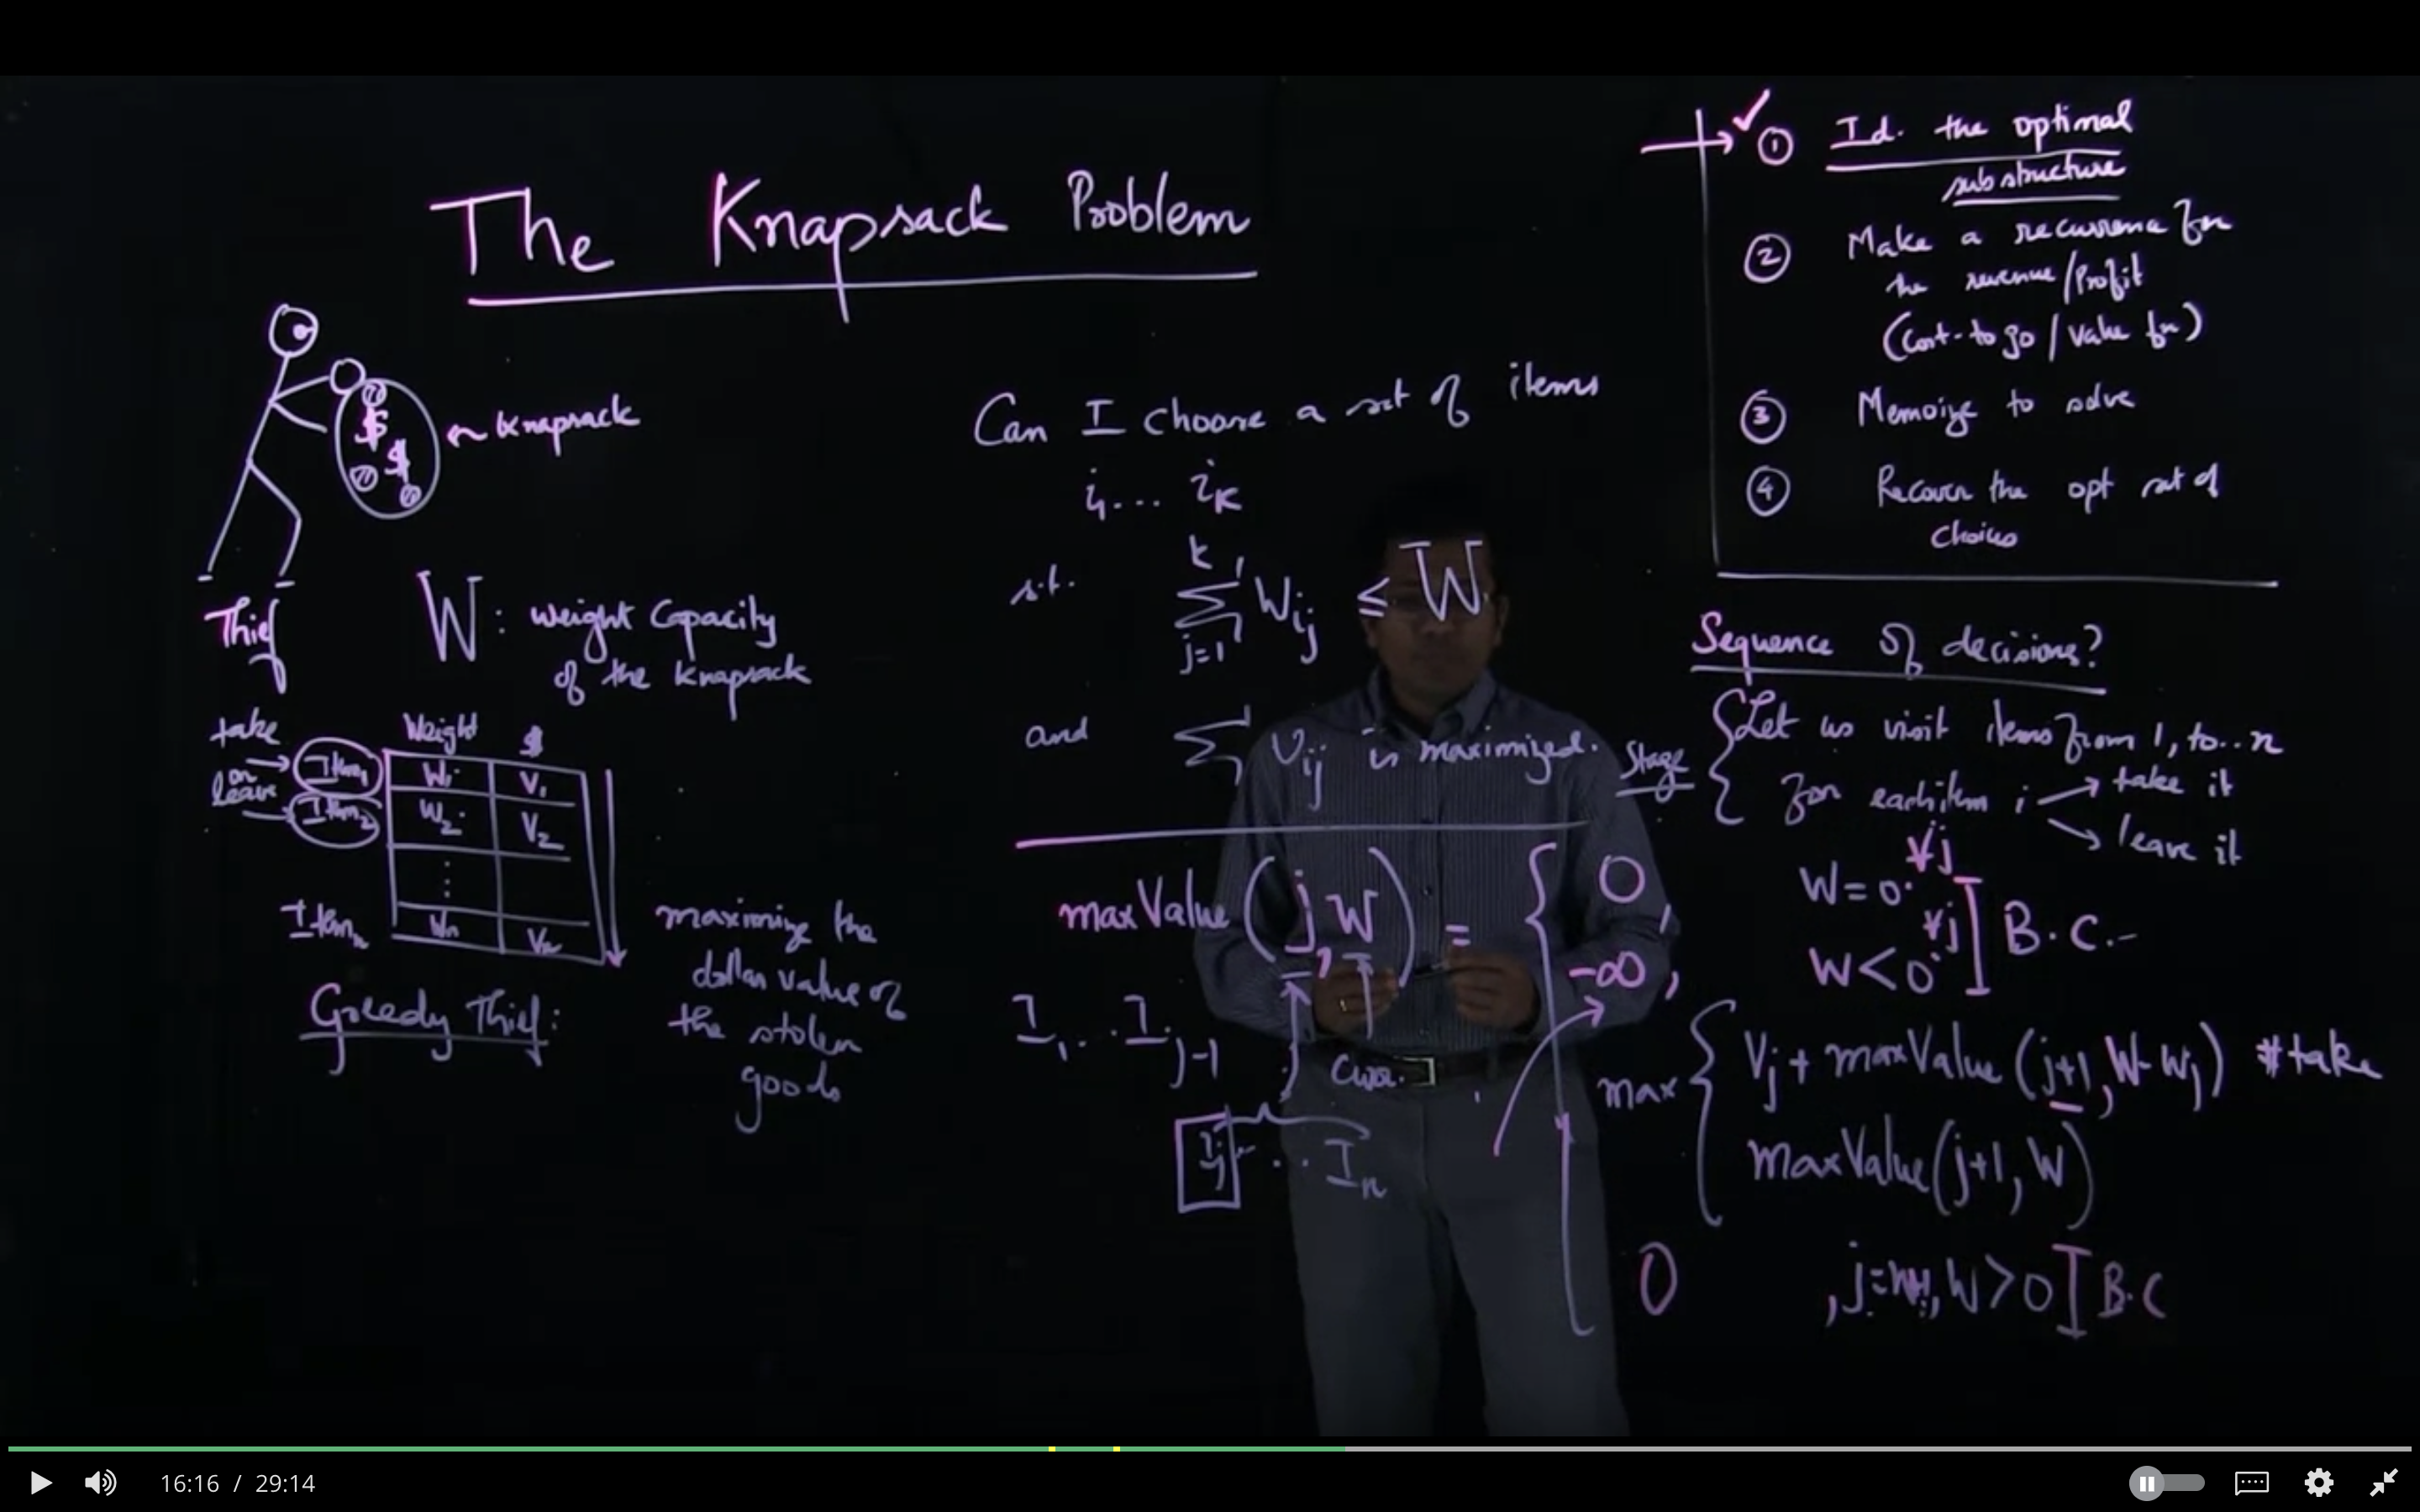 The Knapsack Problem
~ knapsack
Thief
W : weight Capacity
of the knapsack
take
or
leave
Weight $
Item1 W1 V1
Item2 W2 V2
⋮
Itemn Wn Vn
Greedy Thief:
maximize the
dollar value of
the stolen
goods
Can I choose a set of items
i1 ... iK
s.t. k ∑ j=1 Wij ≤ W
and ∑ Vij is maximized.
maxValue (j, W) =
I1 ... Ij-1
j
Ij ... In
0,
-∞,
W=0 ∀j
W<0 ∀j
B.C.
max
Vj + maxValue (j+1, W-Wj) #take
maxValue (j+1, W)
0 , j=n+1, W>0 B.C
① Id. the optimal
substructure
② Make a recurrence fn
the revenue/Profit
(Cost-to go / Value fn)
③ Memoize to solve
④ Recover the opt set of
choices
Sequence of decisions?
Stage
Let us visit items from 1, to .. n
for each item i
take it
leave it
16:16 / 29:14